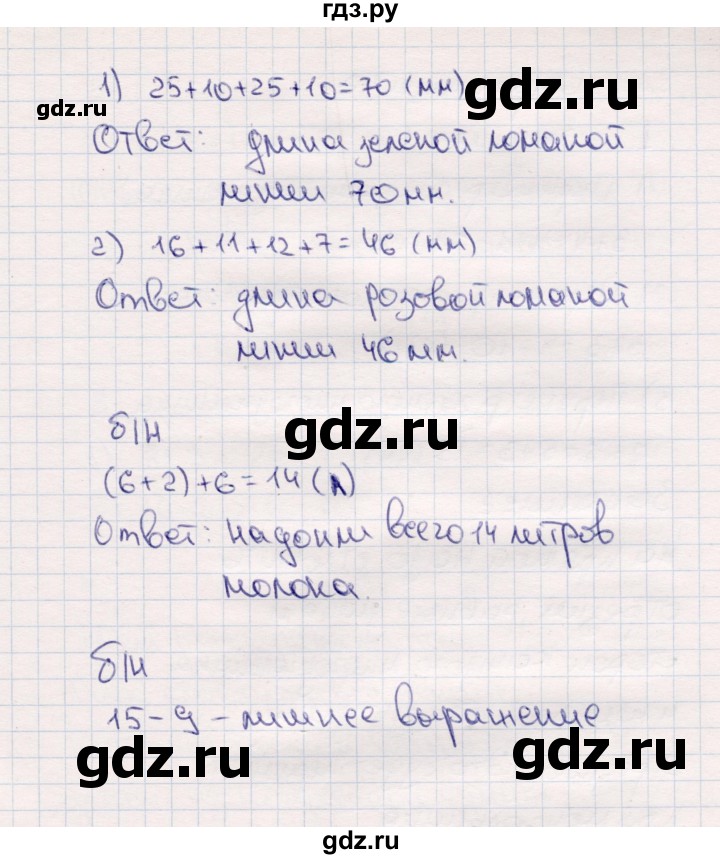 гдз.ру
1) 25+10+25+10=70 (мм)
gdz.ru
gdz.ru
Ответ: длина зеленой ломаной
линии 70мм.
2) 16+11+12+7=46 (мм)
Ответ: длина розовой ломаной
линии 46мм.
б/н
gdz.ru
(6+2)+6=14(л)
Ответ: надоили всего 14 литров
молока.
б/н
15-9 - лишнее выражение
gdz.ru
gdz.ru
gdz.ru